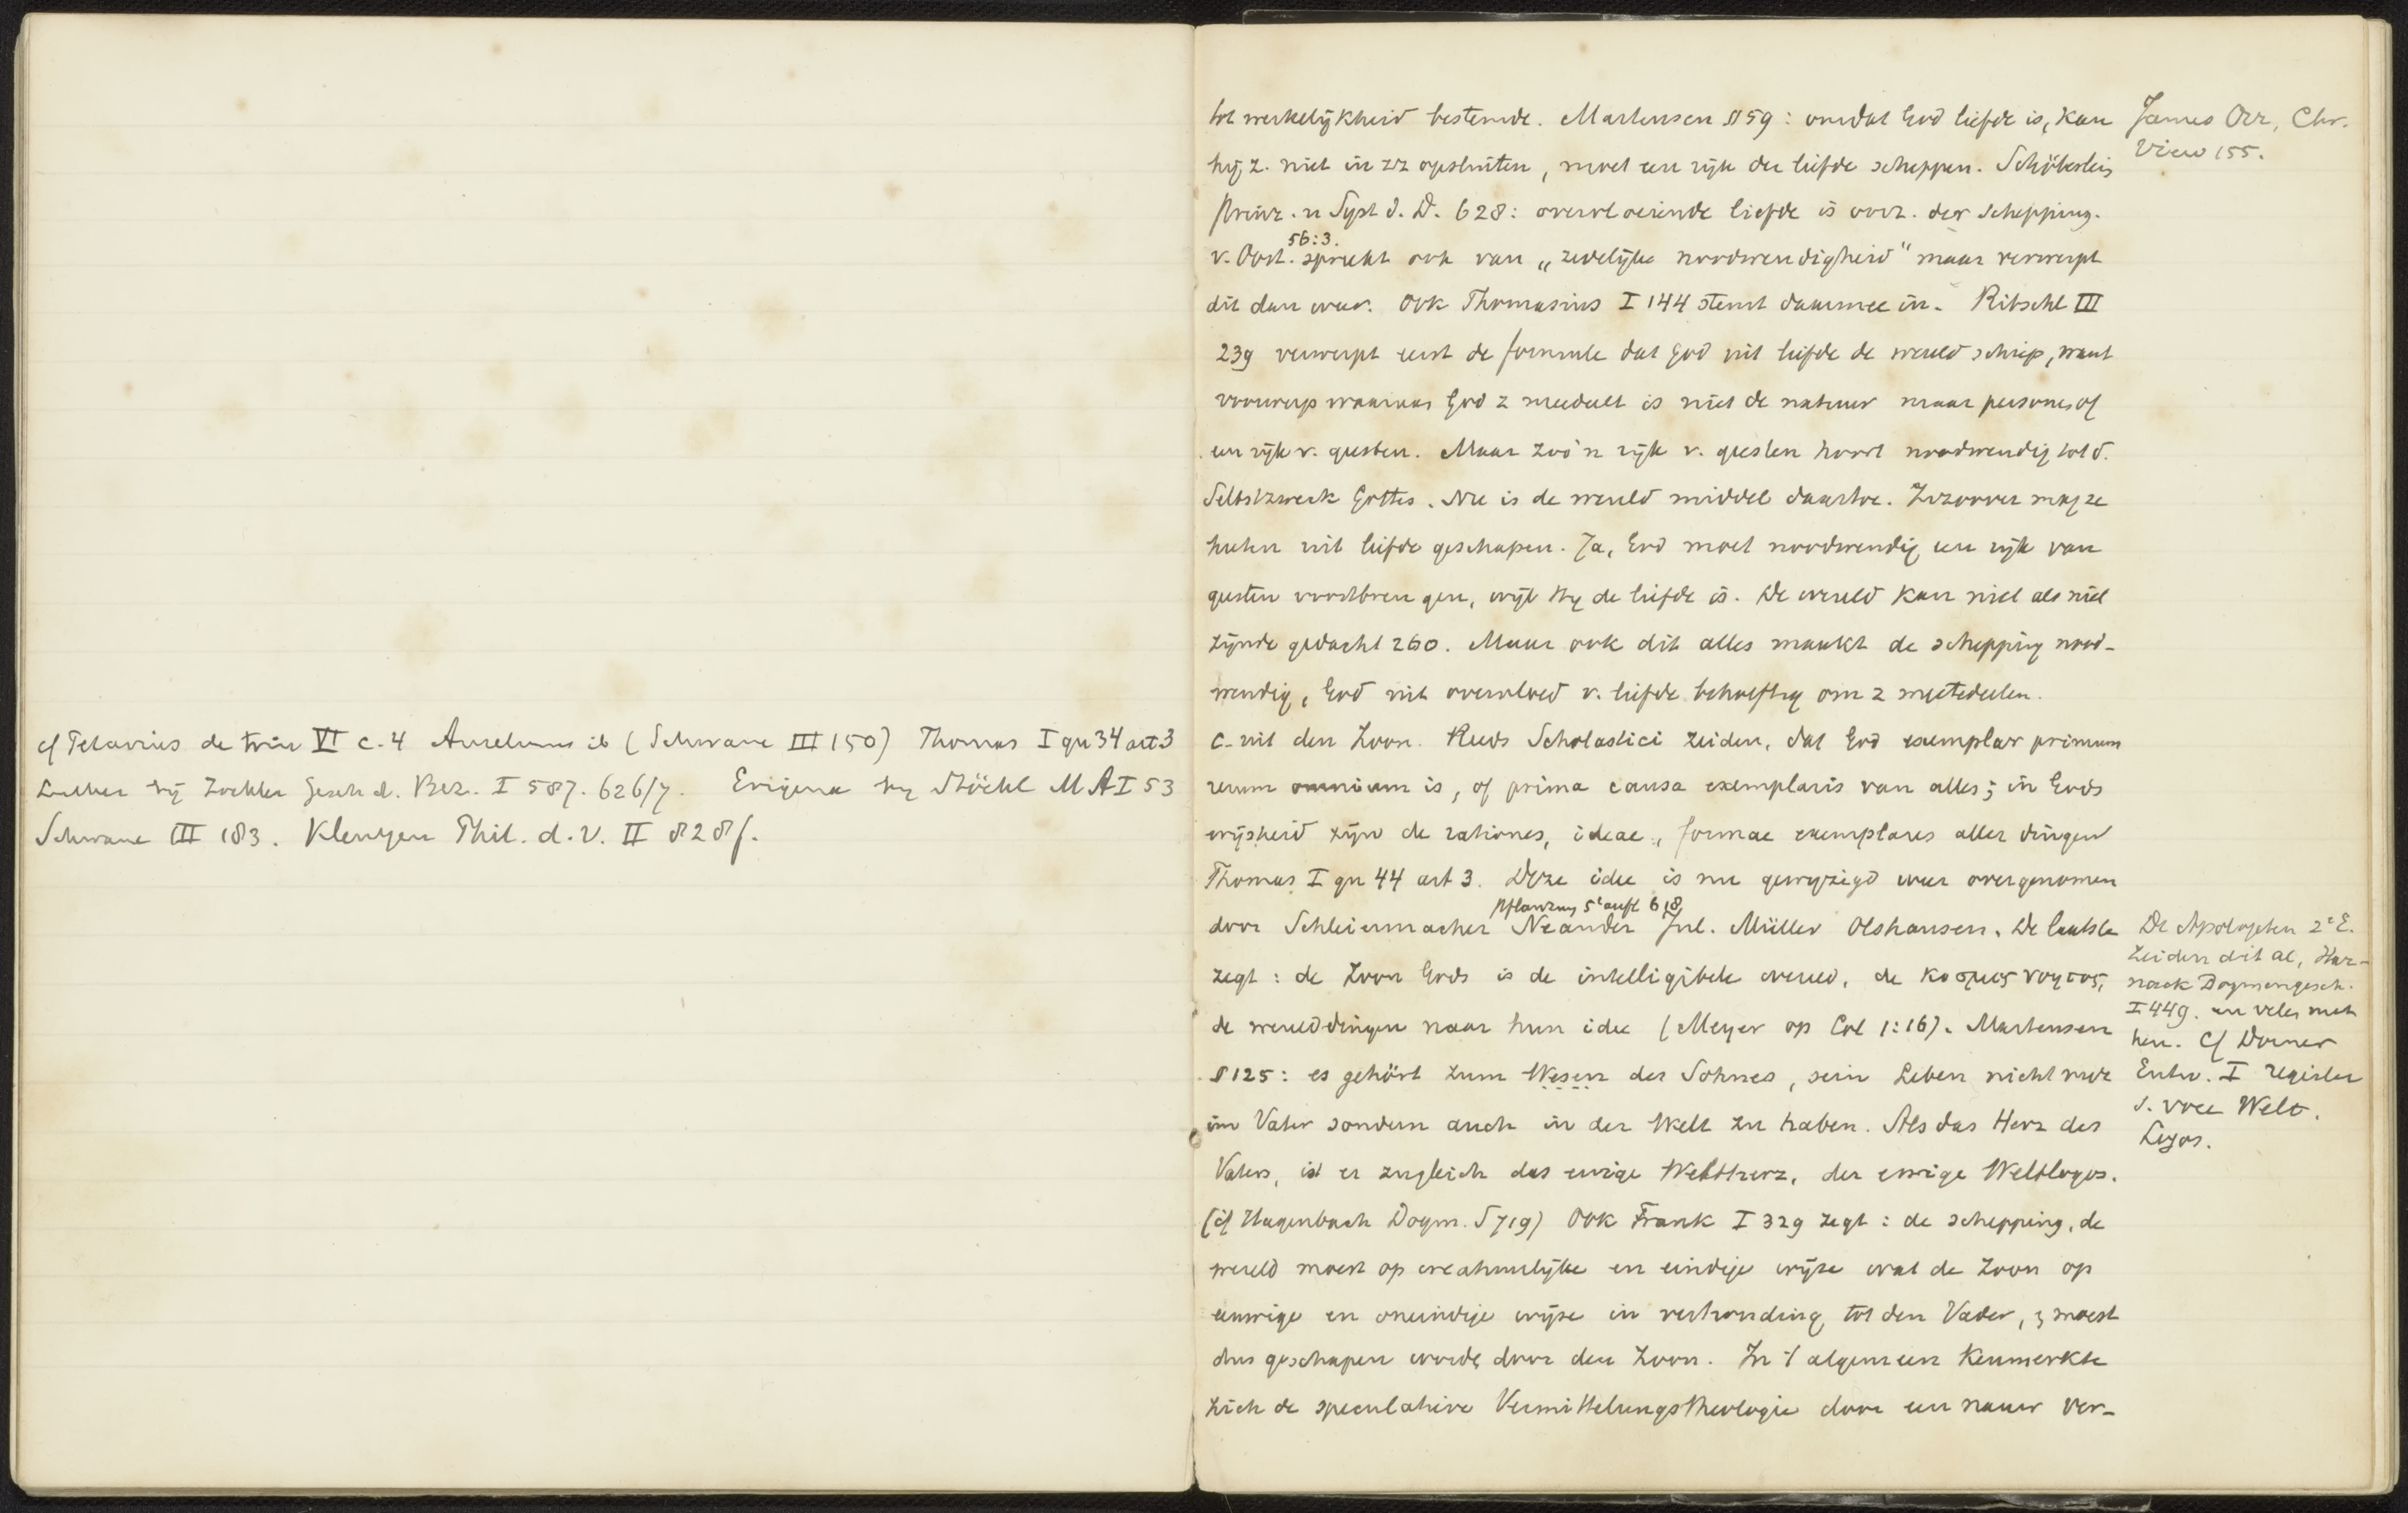 cf Petavius de trin VI c. 4 Anselmus ib (Schwane III 150) Thomas I qu 34 art 3
Luther bij Zockler Gesch d. Bez. I 587. 626/7. Erigena by Stöckl M A I 53
Schwane III 183. Kleutgen Phil. d. V. II 828f.
tot werkelijkheid bestemde. Martensen § 59: omdat God liefde is, kan
hij z. niet in zz opsluiten, moet een rijk der liefde scheppen. Schöberlein
Prinz. u Syst d. D. 628: overvloeiende liefde is oorz. der schepping.
56:3.
v. Oost. spreekt ook van „zedelijke noodwendigheid" maar verwerpt
dit dan weer. Ook Thomasius I 144 stemt daarmee in. Ritschl III
239 verwerpt eerst de formule dat God uit liefde de wereld schiep, want
voorwerp waaraan God z meedeelt is niet de natuur maar personen of
een rijk v. geesten. Maar zoo'n rijk v. geesten hoort noodwendig tot d.
Selbstzweck Gottes. Nu is de wereld middel daartoe. Zoozover mag ze
heeten uit liefde geschapen. Ja, God moet noodwendig een rijk van
geesten voortbrengen, wijl Hij de liefde is. De wereld kan niet als niet
zijnde gedacht 260. Maar ook dit alles maakt de schepping nood-
wendig, God uit overvloed v. liefde behoeftig om z meetedeelen.
c. uit den Zoon. Reeds Scholastici zeiden, dat God exemplar primum
rerum omnium is, of prima causa exemplaris van alles; in Gods
wijsheid zijn de rationes, ideae, formae exemplares aller dingen
Thomas I qu 44 art 3. Deze idee is nu gewijzigd weer overgenomen
Pflanzung 5e aufl 618
door Schleiermacher Neander Jul. Müller Olshausen. De laatste
zegt: de Zoon Gods is de intelligibele wereld, de κοσμος νοητος,
de werelddingen naar hun idee (Meyer op Col 1:16). Martensen
§ 125: es gehört zum Wesen des Sohnes, sein Leben nicht nur
im Vater sondern auch in der Welt zu haben. Als das Herz des
Vaters, ist er zugleich das ewige Weltherz, der ewige Weltlogos.
(cf Hagenbach Dogm. S 719) Ook Frank I 329 zegt: de schepping, de
wereld moest op creatuurlijke en eindige wijze wat de Zoon op
eeuwige en oneindige wijze in verhouding tot den Vader, z moest
dus geschapen worde door den Zoon. In 't algemeen kenmerkte
zich de speculatieve Vermittelungstheologie door een nauw ver-
James Orr, Chr.
View 155.
De Apologeten 2e E.
zeiden dit al, Har-
nack Dogmengesch.
I 449. en velen met
hen. Cf Dorner
Entw. I register
s. voce Welt.
Logos.